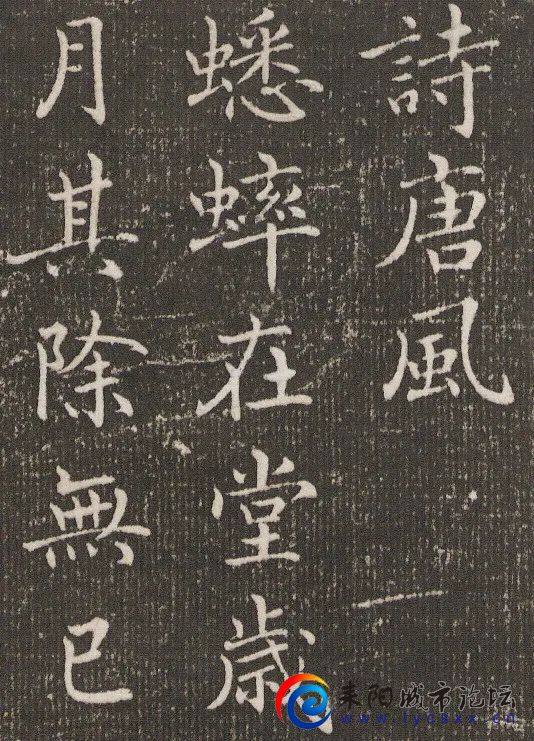 詩唐風
蟋蟀在堂歲
月其除無已
耒阳城市论坛
www.lycsxx.cn